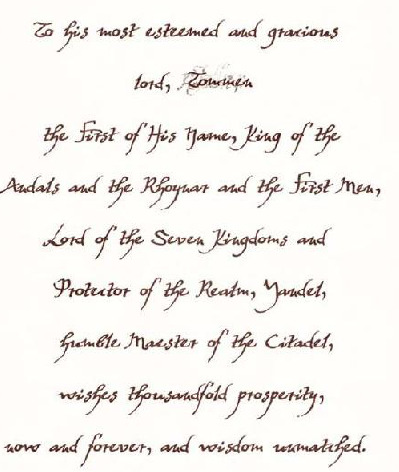 To his most esteemed and gracious
lord, Tommen
the First of His Name, King of the
Andals and the Rhoynar and the First Men,
Lord of the Seven Kingdoms and
Protector of the Realm, Yandel,
humble Maester of the Citadel,
wishes thousandfold prosperity,
now and forever, and wisdom unmatched.